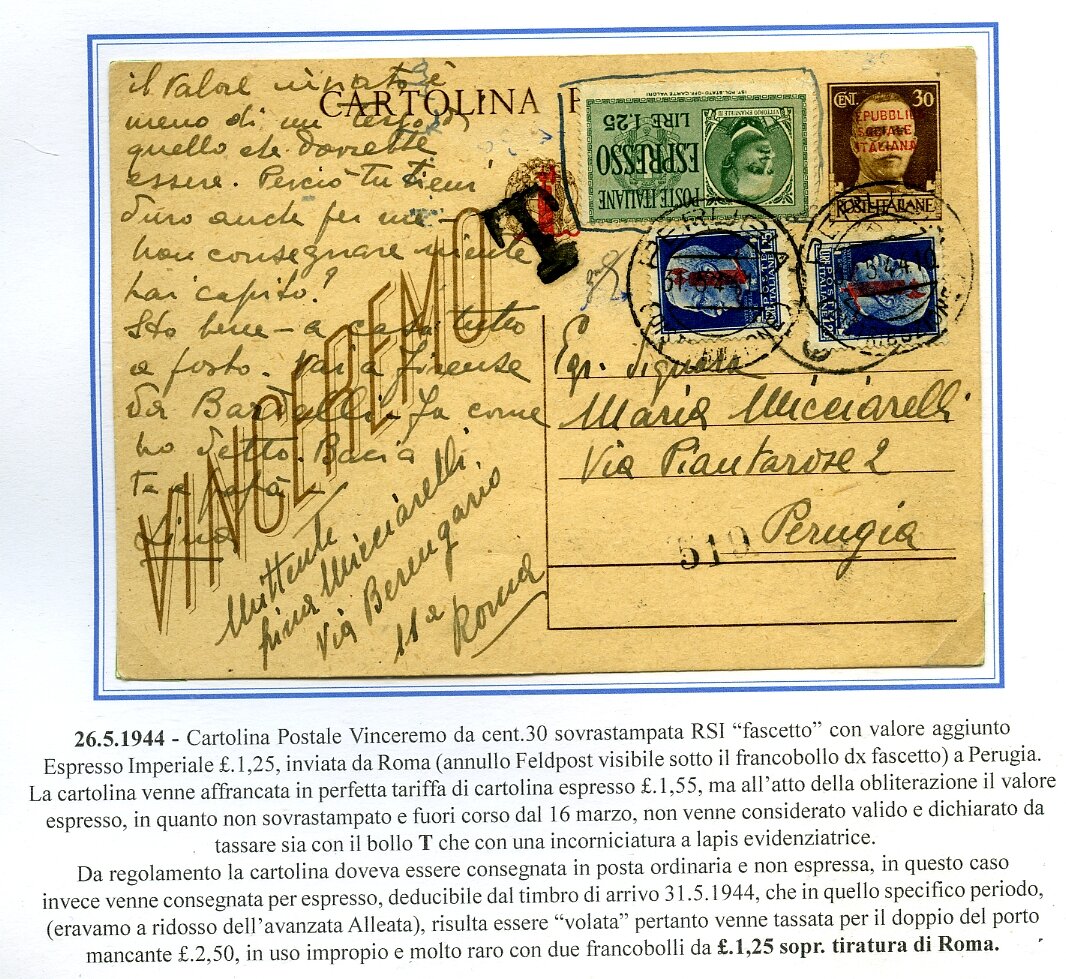 il valore in porto è
meno di un terzo di
quello che dovrebbe
essere. Perciò tu tieni
duro anche per me –
non consegnare niente
hai capito?
Sto bene – a casa tutto
a posto. Vai a Firenze
da Bardelli. Fa come
ho detto. Bacia
papà
Lina
Mittente
Lina Micciarelli.
Via Berengario
11a
Roma
CARTOLINA P
VINCEREMO
T
IST. POL. STATO-OFF. CARTE VALORI
POSTE ITALIANE
ESPRESSO
LIRE 1,25
VITTORIO EMANUELE
CENT. 30
REPUBBLICA
SOCIALE
ITALIANA
POSTE ITALIANE
POSTE
ITALIANE
1,25
PERUGIA
Egr. Signora
Maria Micciarelli
Via Piantarose 2
Perugia
519
26.5.1944 - Cartolina Postale Vinceremo da cent.30 sovrastampata RSI “fascetto” con valore aggiunto
Espresso Imperiale £.1,25, inviata da Roma (annullo Feldpost visibile sotto il francobollo dx fascetto) a Perugia.
La cartolina venne affrancata in perfetta tariffa di cartolina espresso £.1,55, ma all’atto della obliterazione il valore
espresso, in quanto non sovrastampato e fuori corso dal 16 marzo, non venne considerato valido e dichiarato da
tassare sia con il bollo T che con una incorniciatura a lapis evidenziatrice.
Da regolamento la cartolina doveva essere consegnata in posta ordinaria e non espressa, in questo caso
invece venne consegnata per espresso, deducibile dal timbro di arrivo 31.5.1944, che in quello specifico periodo,
(eravamo a ridosso dell’avanzata Alleata), risulta essere “volata” pertanto venne tassata per il doppio del porto
mancante £.2,50, in uso improprio e molto raro con due francobolli da £.1,25 sopr. tiratura di Roma.